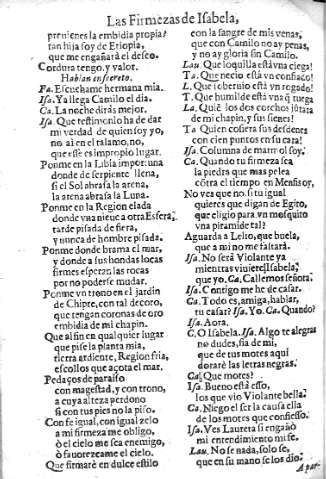 Las Firmezas de Isabela,
preuienes la embidia propia?
tan hija soy de Etiopia,
que me engañarà el desseo.
Cordura tengo, y valor.
Hablan en secreto.
Fa. Escuchame hermana mia.
Isa. Ya llega Camilo el dia.
Ca. La noche dirás mejor.
Isa. Que testimonio ha de dar
mi verdad de quien soy yo,
no aì en el talamo, no,
que esse es impropio lugar.
Ponme en la Libia impor: una
donde de serpiente llena,
si el Sol abrasa la arena,
la arena abrasa la Luna.
Ponme en la Region elada
donde vna nieue a otra Esfera,
tarde pisada de fiera,
y nunca de hombre pisada.
Ponme donde brama el mar,
y donde a sus hondas locas
firmes esperan las rocas
por no poderse mudar.
Ponme vn trono en el jardin
de Chipre, con tal decoro,
que tengan coronas de oro
embidia de mi chapin.
Que al fin en qualquier lugar
que pise la planta mia,
tierra ardiente, Region fria,
escollos que açota el mar.
Pedaços de paraiso
con magestad, y con trono,
a cuya alteza perdono
si con tus pies no la piso.
Con fe igual, con igual zelo
a mi firmeza me obligo,
ò el cielo me sea enemigo,
ò fauorezcame el cielo.
Que firmarè en dulce estilo
con la sangre de mis venas,
que con Camilo no ay penas,
y no ay gloria sin Camilo.
Lau. Que loquilla està vna ciega!
Ta. Que necio està vn confiado!
L. Que soberuio està vn rogado!
T. Que humilde està vna q̃ ruega
La. Quiẽ los dos corchos jũtara
de mi chapin, y sus sienes!
Ta Quien cosiera sus desdenes
con cien puntos en su cara!
Isa. Columna de marmol soy.
Ca. Quando tu firmeza sea
la piedra que mas pelea
cõtra el tiempo en Menfis oy,
No vea que no, si tu igual
quieres que digan de Egito,
que eligio para vn mosquito
vna piramide tal?
Aguarda a Lelio, que buela,
que a mi no me faltarà.
Isa. No serà Violante ya
mientras viuiere Isabela,
que yo. Ca. Callemos señora.
Isa. Contigo me he de casar.
Ca. Todo es, amiga, hablar,
tu casar? Isa. Yo. Ca. Quando?
Isa. Aora.
C. O Isabela. Isa. Algo te alegras
no dudes, fia de mi,
que de tus motes aqui
dorarè las letras negras.
Ca. Que motes?
Isa. Bueno està esso,
los que vio Violante bella.
Ca. Niego el ser la causa ella
de los motes que confiesso.
Isa. Ves Laureta si engañò
mi entendimiento mi fe.
Lau. No se nada, solo se,
que en su mano se los dio.
Apar-